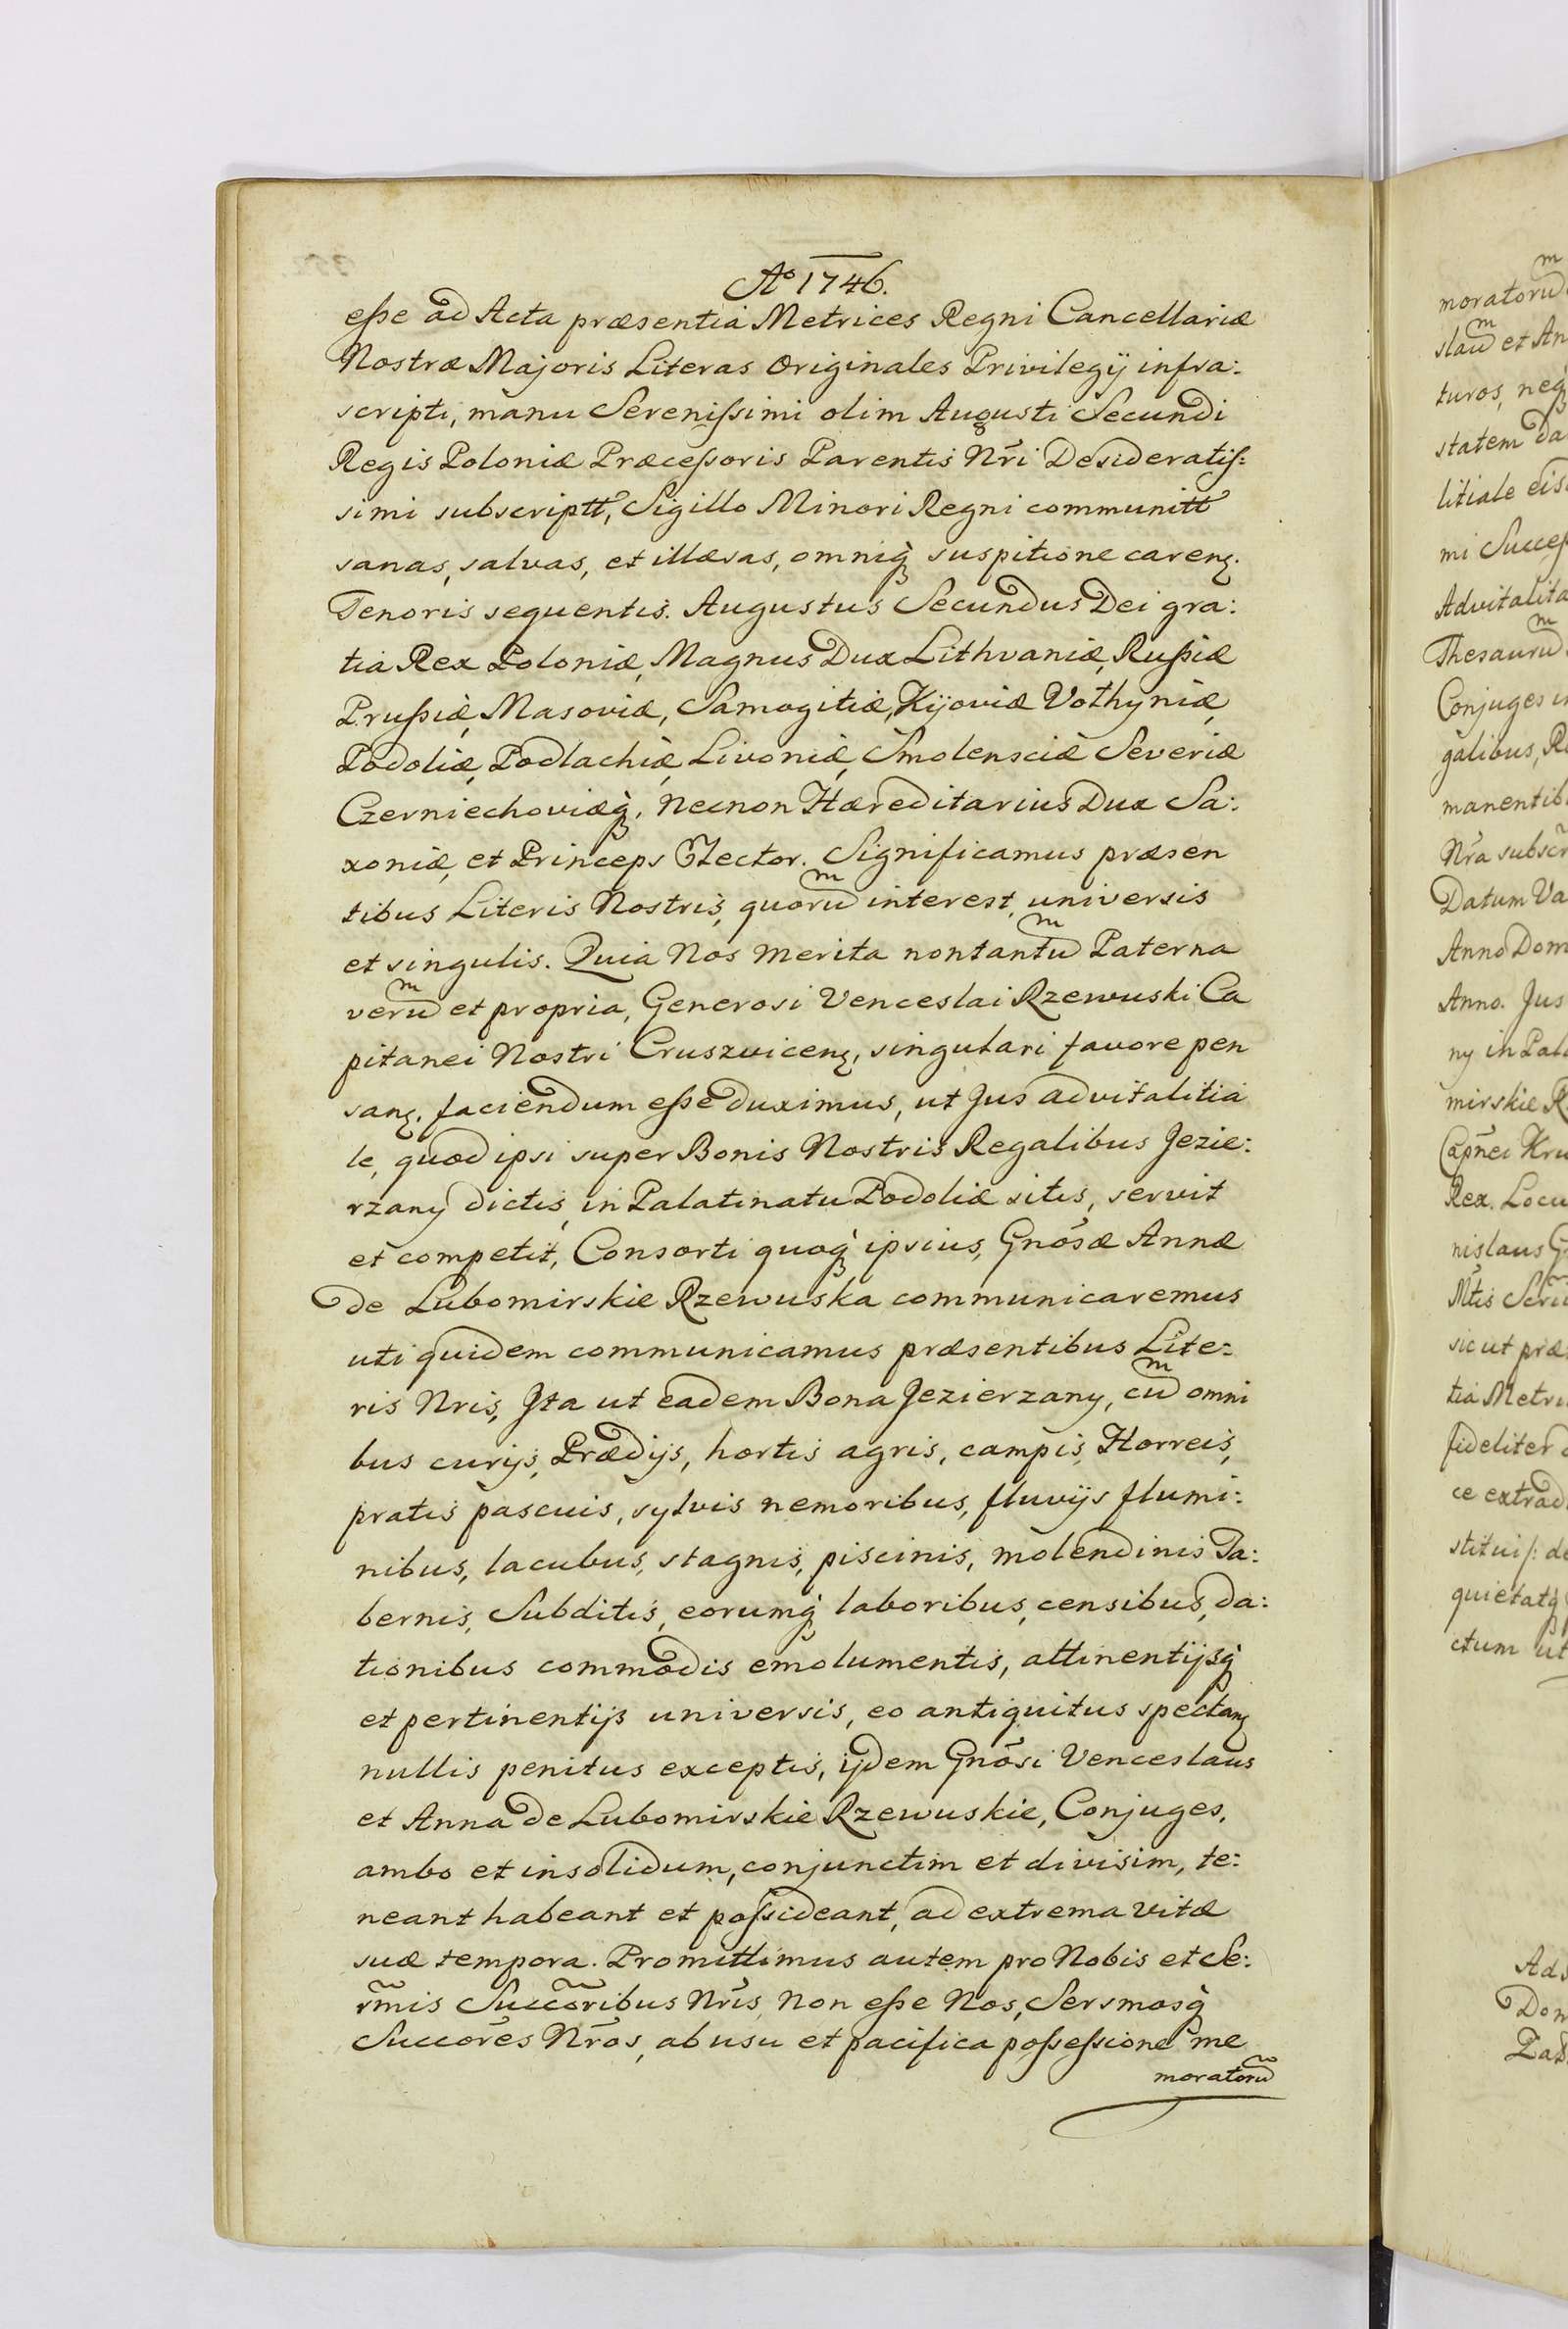 Aº 1746.
eſse ad Acta præsentia Metrices Regni Cancellariæ
Nostræ Majoris Literas Originales Privilegÿ infra:
scripti, manu Sereniſsimi olim Augusti Secundi
Regis Poloniæ Præceſsoris Parentis Nr̃i Desideratiſ:
simi subscriptt, Sigillo Minori Regni communitt
sanas, salvas, et illæsas, omniq̀ suspitione careng.
Tenoris sequentis. Augustus Secundus Dei gra:
tia Rex Poloniæ, Magnus Dux Lithvaniæ, Ruſsiæ
Pruſsiæ, Masoviæ, Samogitiæ, Kijoviæ Volhyniæ,
Podoliæ, Podlachiæ, Livoniæ, Smolensciæ Severiæ
Czerniechoviæq̀, Necnon Hæreditarius Dux Sa:
xoniæ, et Princeps Elector. Significamus præsen
tibus Literis Nostris, quorum̃ interest, universis
et singulis. Quia Nos merita non tantum̃ Paterna
verum̃ et propria, Generosi Venceslai Rzewuski Ca
pitanei Nostri Cruszviceng, singulari favore pen
sang. faciendum eſse duximus, ut Jus advitalitia
le, quod ipsi super Bonis Nostris Regalibus Jezie:
rzany dictis, in Palatinatu Podoliæ sitis, servit
et competit, Consorti quoq̀ ipsius, Gnõsæ Annæ
de Lubomirskie Rzewuska communicaremus
uti quidem communicamus præsentibus Lite:
ris Nris, Jta ut eadem Bona Jezierzany, cum̃ omni
bus curÿs, Prædÿs, hortis agris, campis, Horreis,
pratis pascuis, sylvis nemoribus, fluvÿs flumi:
nibus, lacubus, stagnis, piscinis, molendinis Ta:
bernis, Subditis, eorumq̀ laboribus, censibus, da:
tionibus commodis emolumentis, attinentÿsq̀
et pertinentÿs universis, eo antiquitus spectang
nullis penitus exceptis, ÿdem Gnõsi Venceslaus
et Anna de Lubomirskie Rzewuskie, Conjuges,
ambo et insolidum, conjunctim et divisim, te:
neant habeant et poſsideant, ad extrema vitæ
suæ tempora. Promittimus autem pro Nobis et Se:
rm̃is Succõribus Nrĩs, Non eſse Nos, Sersmosq̀
Succorẽs Nr̃os, ab usu et pacifica poſseſsione me
moratorum̃
moratorum̃
slaum̃ et An
turos, neq̀
statem da
litiale eis
mi Succeſ
Advitalita
Thesaurum̃
Conjuges i
galibus, R
manentib
Nr̃a subscr
Datum Va
Anno Dom
Anno. Jus
ny in Pala
mirskie R
Capñei Kru
Rex. Locu
nislaus G
Mtis Scri
sic ut præ
tia Metri
fideliter d
ce extrad
stituiſ: de
quietatq̀
ctum ut
Ads
Dom
Pad